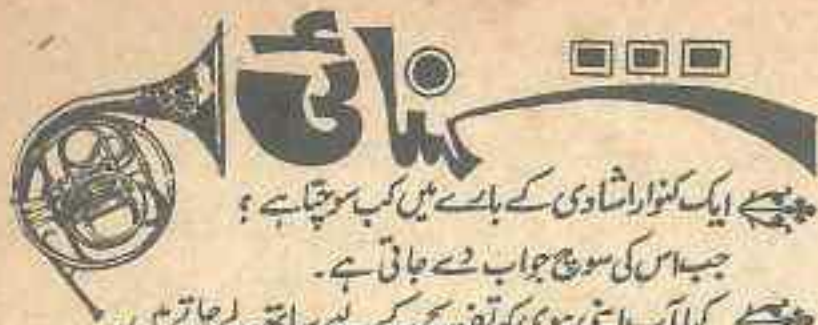 شہنائی
ایک کنوارا شادی کے بارے میں کب سوچتا ہے ؟
جب اس کی سوچ جواب دے جاتی ہے ۔
کیا آپ اپنی بیوی کو تفریح کے لیے ساتھ لے جاتے ہیں